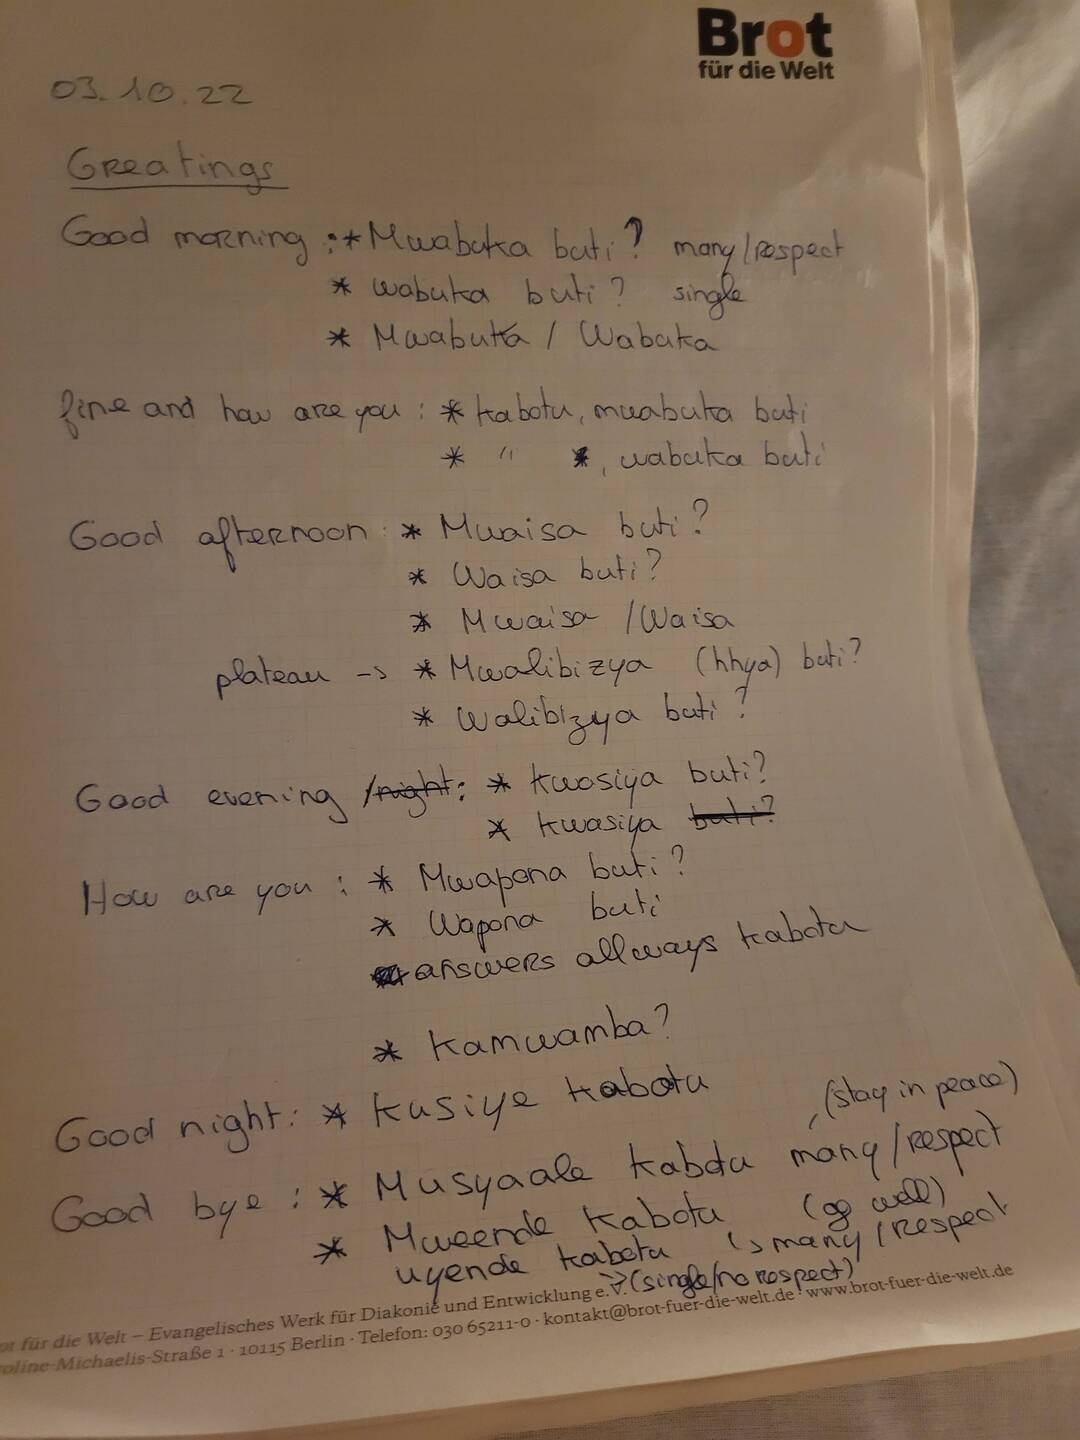 Brot
für die Welt
03.10.22
Greatings
Good morning : * Mwabuka buti? many/respect
* wabuka buti? single
* Mwabuka / Wabuka
fine and how are you : * kabotu, mwabuka buti
* " , wabuka buti
Good afternoon : * Mwaisa buti?
* Waisa buti?
* Mwaisa / Waisa
plateau -> * Mwalibizya (hhya) buti?
* Walibizya buti?
Good evening /night: * kwasiya buti?
* kwasiya buti?
How are you : * Mwapona buti?
* Wapona buti
answers allways kabotu
* Kamwamba?
Good night: * kusiye kabotu
(stay in peace)
Good bye : * Musyaale kabotu many/respect
* Mweende kabotu (go well)
↳ many/respect
uyende kabotu
↳ (single/no respect)
für die Welt – Evangelisches Werk für Diakonie und Entwicklung e.V.
oline-Michaelis-Straße 1 · 10115 Berlin · Telefon: 030 65211-0 · kontakt@brot-fuer-die-welt.de · www.brot-fuer-die-welt.de